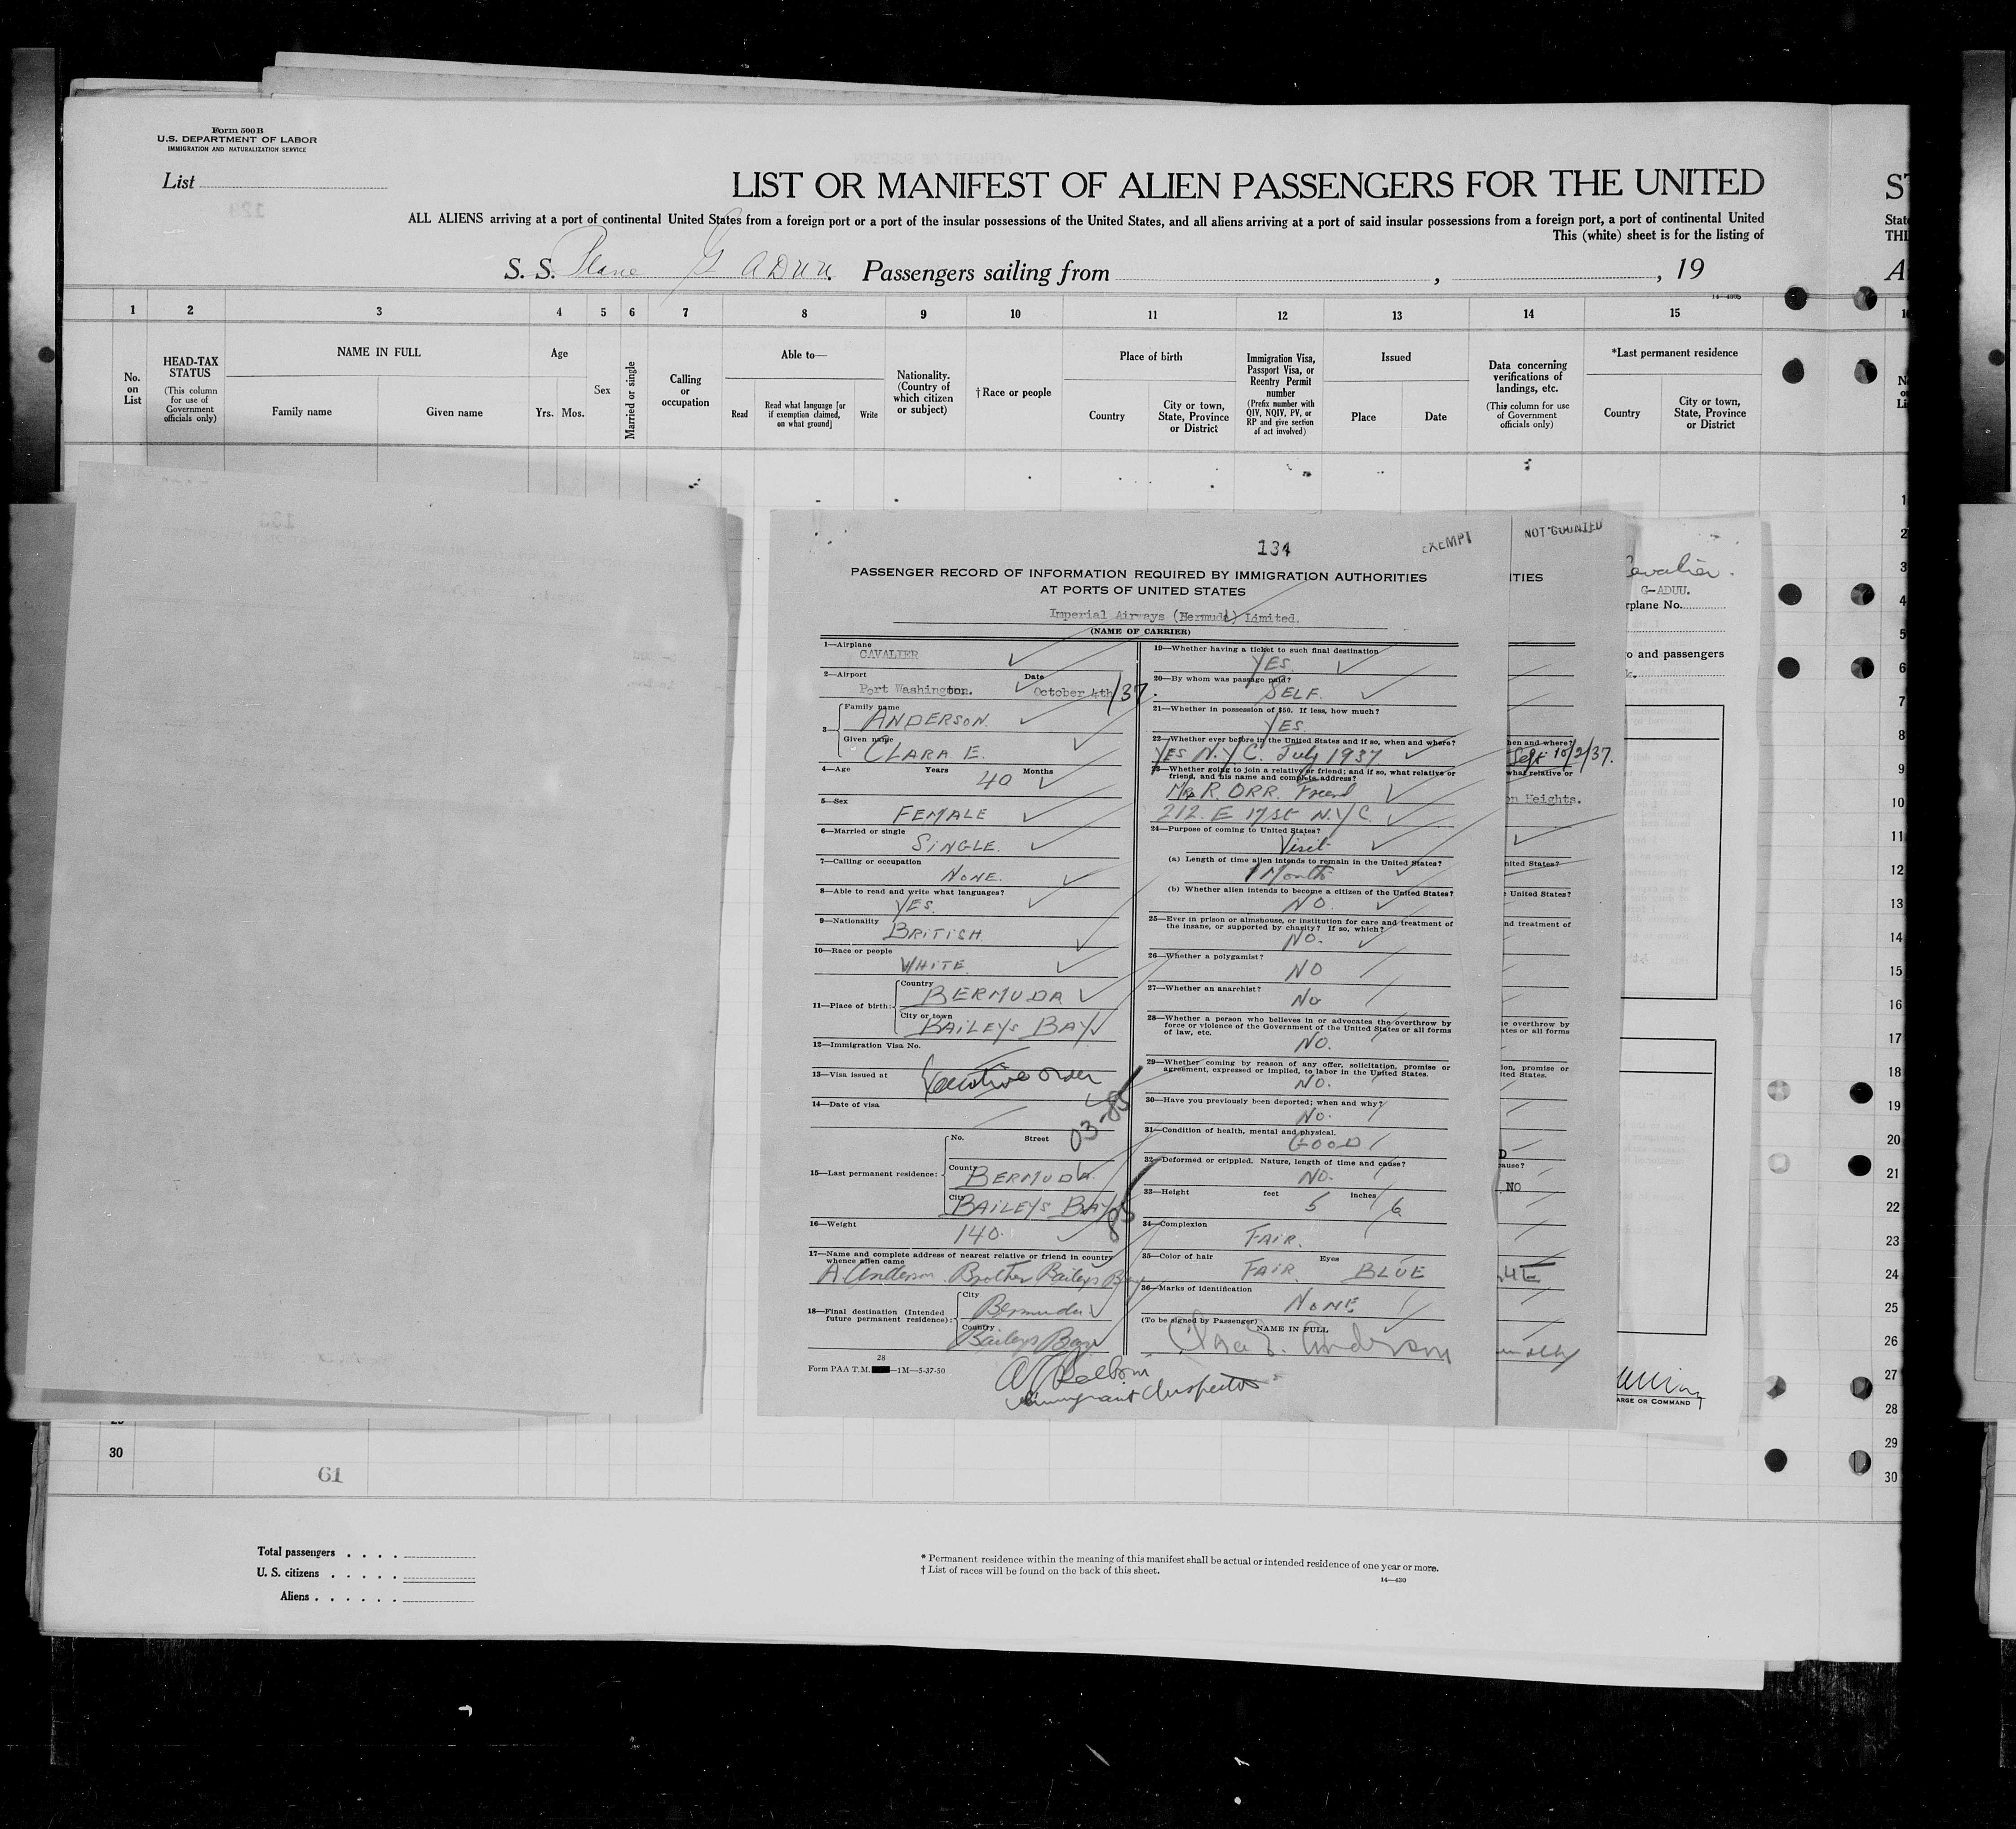 Form 500B
U.S. DEPARTMENT OF LABOR
IMMIGRATION AND NATURALIZATION SERVICE
List
LIST OR MANIFEST OF ALIEN PASSENGERS FOR THE UNITED
ALL ALIENS arriving at a port of continental United States from a foreign port or a port of the insular possessions of the United States, and all aliens arriving at a port of said insular possessions from a foreign port, a port of continental United
This (white) sheet is for the listing of
S. S. Plane G ADUU. Passengers sailing from , , 19
14—430b
1 2 3 4 5 6 7 8 9 10 11 12 13 14 15
No. on List
HEAD-TAX STATUS
(This column for use of Government officials only)
NAME IN FULL
Family name
Given name
Age
Yrs. Mos.
Sex
Married or single
Calling or occupation
Able to—
Read
Read what language [or if exemption claimed, on what ground]
Write
Nationality. (Country of which citizen or subject)
† Race or people
Place of birth
Country
City or town, State, Province or District
Immigration Visa, Passport Visa, or Reentry Permit number
(Prefix number with QIV, NQIV, PV, or RP and give section of act involved)
Issued
Place
Date
Data concerning verifications of landings, etc.
(This column for use of Government officials only)
*Last permanent residence
Country
City or town, State, Province or District
134
EXEMPT
NOT COUNTED
PASSENGER RECORD OF INFORMATION REQUIRED BY IMMIGRATION AUTHORITIES
AT PORTS OF UNITED STATES
Imperial Airways (Bermuda) Limited.
(NAME OF CARRIER)
1—Airplane
CAVALIER
2—Airport Date
Port Washington. October 4th/37.
3— Family name
ANDERSON.
Given name
CLARA E.
4—Age Years Months
40
5—Sex
FEMALE
6—Married or single
SINGLE.
7—Calling or occupation
NONE.
8—Able to read and write what languages?
YES.
9—Nationality
BRITISH
10—Race or people
WHITE
11—Place of birth:
Country
BERMUDA
City or town
BAILEYS BAY
12—Immigration Visa No.
13—Visa issued at
Executive order
14—Date of visa
03-85
15—Last permanent residence:
No. Street
County
BERMUDA.
City
BAILEYS BAY
85
16—Weight
140.
17—Name and complete address of nearest relative or friend in country whence alien came
A. Anderson. Brother Baileys Bay
18—Final destination (Intended future permanent residence):
City
Bermuda
Country
Baileys Bay
28
Form PAA T.M. —1M—5-37-50
Immigrant Inspector
19—Whether having a ticket to such final destination
YES.
20—By whom was passage paid?
SELF.
21—Whether in possession of $50. If less, how much?
YES.
22—Whether ever before in the United States and if so, when and where?
YES N.Y.C. July 1937
23—Whether going to join a relative or friend; and if so, what relative or
friend, and his name and complete address?
Mrs R. ORR. Friend
212. E 17 St N.Y.C.
24—Purpose of coming to United States?
Visit
(a) Length of time alien intends to remain in the United States?
1 Month
(b) Whether alien intends to become a citizen of the United States?
NO.
25—Ever in prison or almshouse, or institution for care and treatment of
the insane, or supported by charity? If so, which?
NO.
26—Whether a polygamist?
NO
27—Whether an anarchist?
No
28—Whether a person who believes in or advocates the overthrow by
force or violence of the Government of the United States or all forms
of law, etc.
NO.
29—Whether coming by reason of any offer, solicitation, promise or
agreement, expressed or implied, to labor in the United States.
NO.
30—Have you previously been deported; when and why?
No.
31—Condition of health, mental and physical.
GOOD
32—Deformed or crippled. Nature, length of time and cause?
NO.
33—Height feet inches
5 6
34—Complexion
FAIR.
35—Color of hair Eyes
FAIR. BLUE
36—Marks of identification
NONE
(To be signed by Passenger)
NAME IN FULL
Clara E. Anderson
ITIES
hen and where?
Sept 10/2/37.
what relative or
on Heights.
nited States?
United States?
nd treatment of
e overthrow by
ates or all forms
ion, promise or
ited States.
D
ause?
NO
Cavalier.
G-ADUU.
rplane No.
o and passengers
k.
ARGE OR COMMAND
ST
State
THI
A
1
2
3
4
5
6
7
8
9
10
11
12
13
14
15
16
17
18
19
20
21
22
23
24
25
26
27
28
29
30
30
61
Total passengers
U. S. citizens
Aliens
* Permanent residence within the meaning of this manifest shall be actual or intended residence of one year or more.
† List of races will be found on the back of this sheet.
14—430